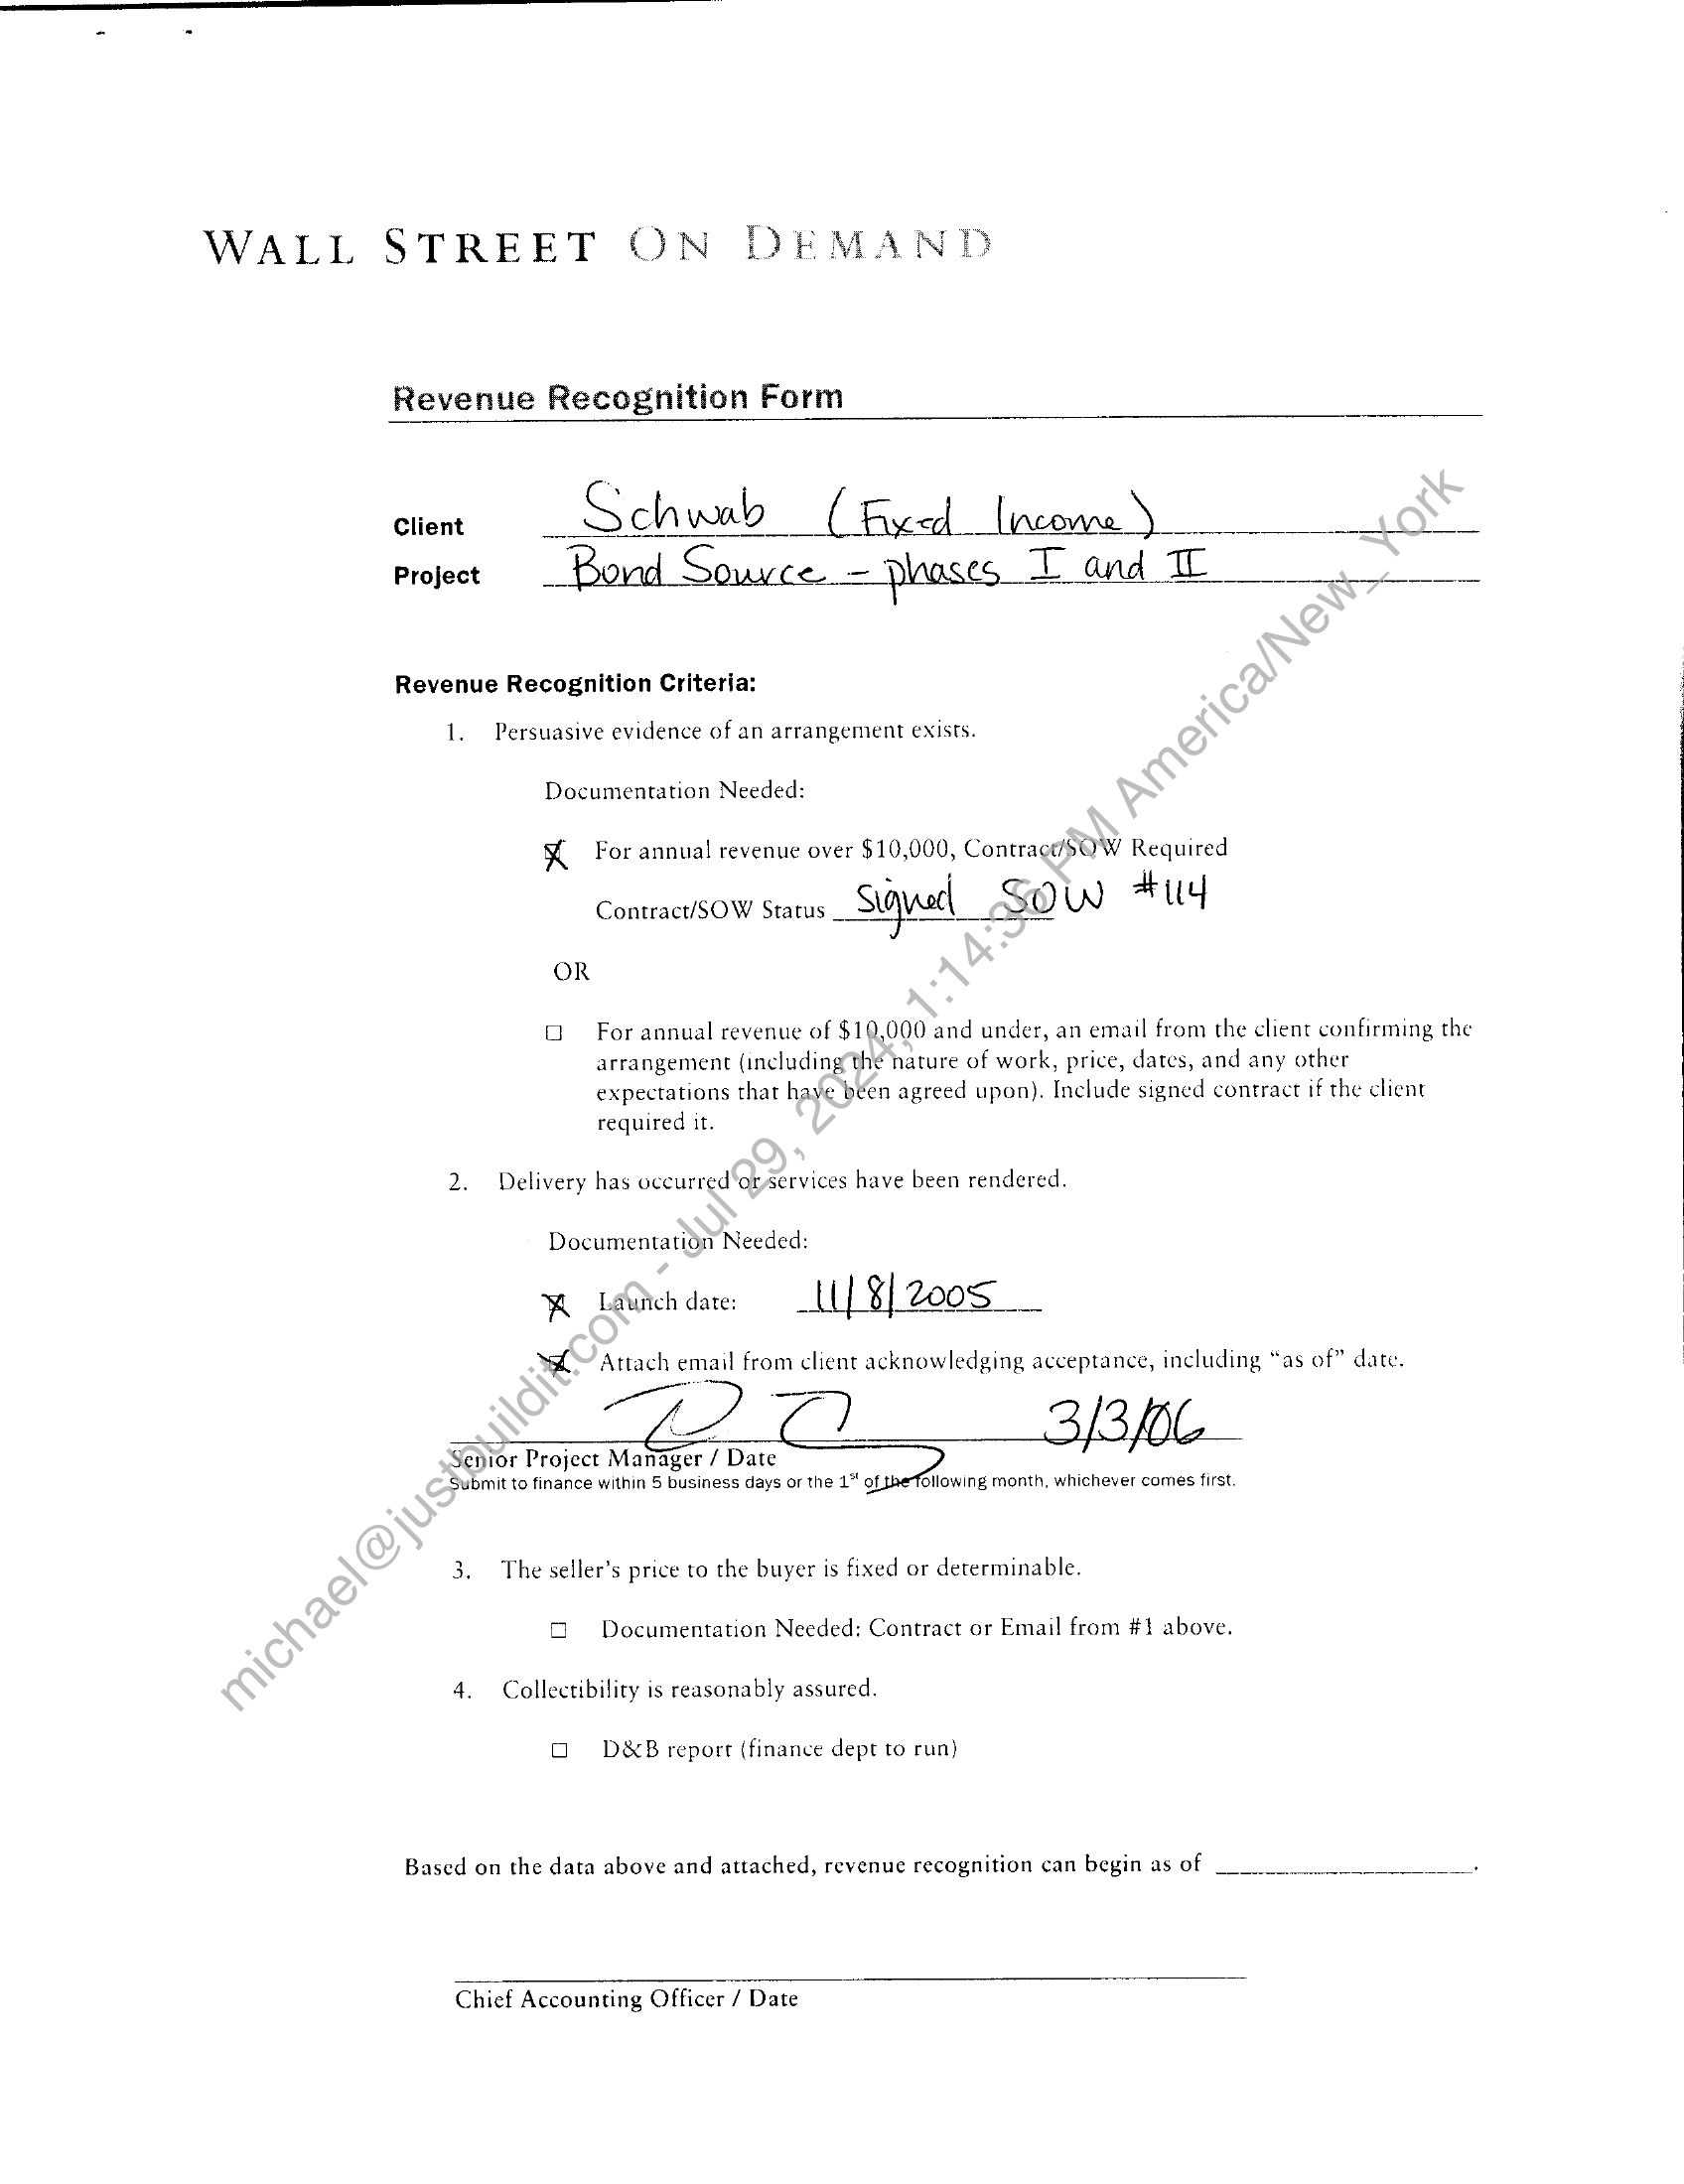 WALL STREET ON DEMAND
Revenue Recognition Form
Client Schwab (Fixed Income)
Project Bond Source - phases I and II
Revenue Recognition Criteria:
1. Persuasive evidence of an arrangement exists.
Documentation Needed:
For annual revenue over $10,000, Contract/SOW Required
Contract/SOW Status Signed SOW #114
OR
For annual revenue of $10,000 and under, an email from the client confirming the
arrangement (including the nature of work, price, dates, and any other
expectations that have been agreed upon). Include signed contract if the client
required it.
2. Delivery has occurred or services have been rendered.
Documentation Needed:
Launch date: 11/8/2005
Attach email from client acknowledging acceptance, including “as of” date.
3/3/06
Senior Project Manager / Date
Submit to finance within 5 business days or the 1st of the following month, whichever comes first.
3. The seller’s price to the buyer is fixed or determinable.
Documentation Needed: Contract or Email from #1 above.
4. Collectibility is reasonably assured.
D&B report (finance dept to run)
Based on the data above and attached, revenue recognition can begin as of .
Chief Accounting Officer / Date
michael@justbuildit.com - Jul 29, 2024, 1:14:36 PM America/New_York